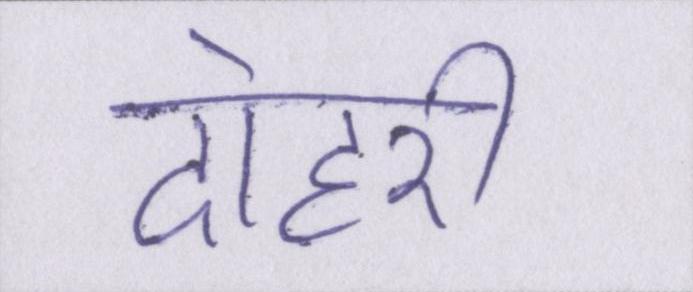 दोहरी